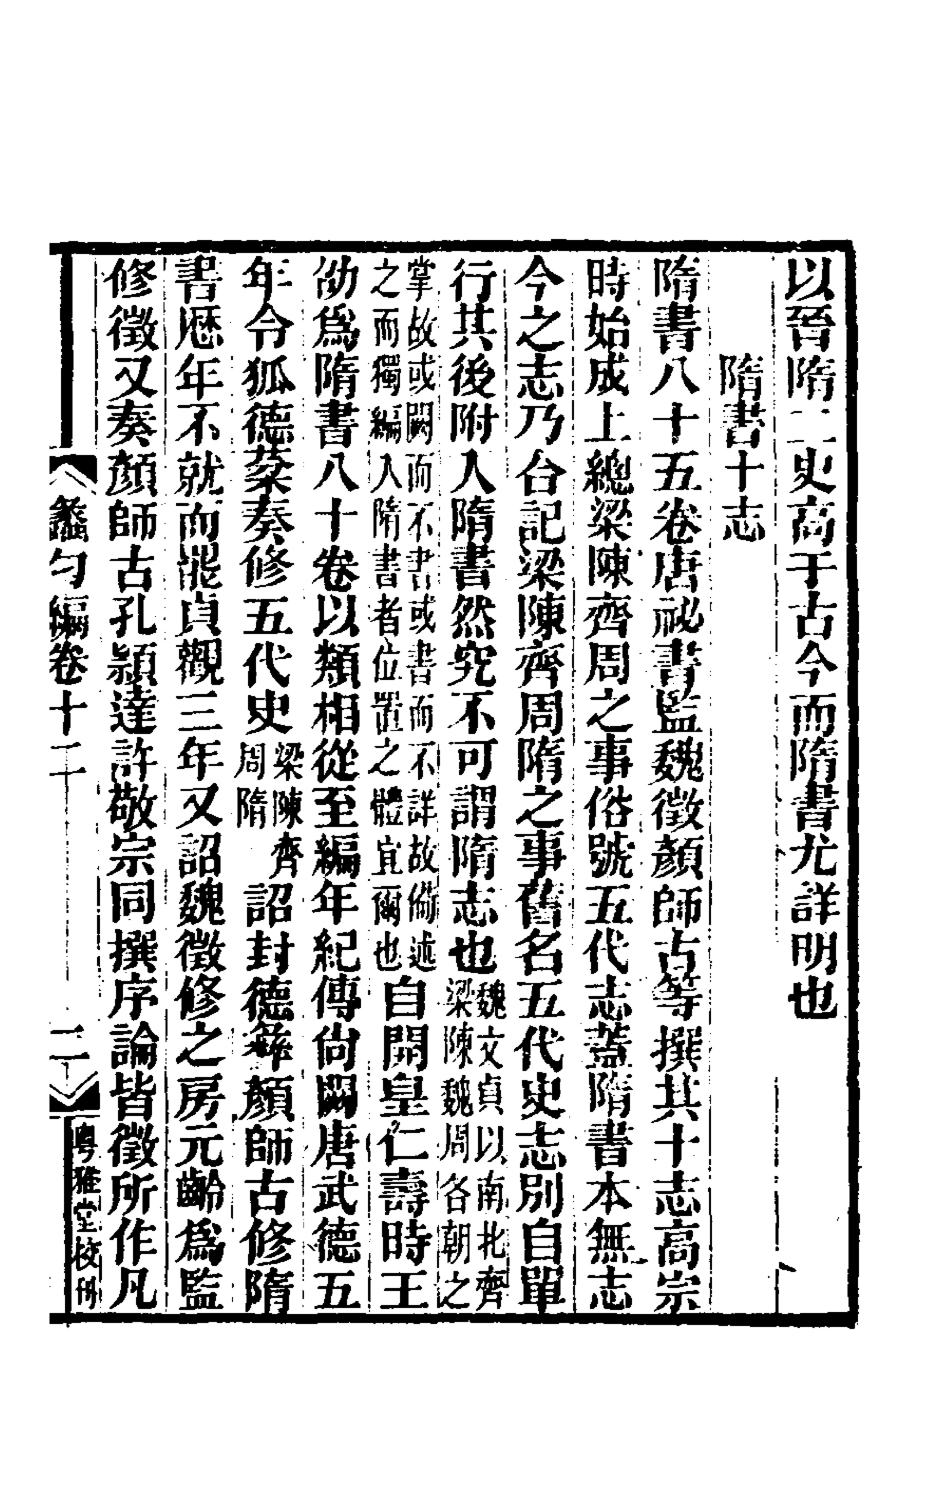 以晉隋二史高于古今而隋書尤詳明也
隋書十志
隋書八十五卷唐祕書監魏徵顏師古等撰其十志高宗
時始成上總梁陳齊周之事俗號五代志蓋隋書本無志
今之志乃合記梁陳齊周隋之事舊名五代史志別自單
行其後附入隋書然究不可謂隋志也魏文貞以南北齊
梁陳魏周各朝之
掌故或闕而不書或書而不詳故備述
之而獨編入隋書者位置之體宜爾也自開皇仁壽時王
劭爲隋書八十卷以類相從至編年紀傳尚闕唐武德五
年令狐德棻奏修五代史梁陳齊
周隋詔封德彝顏師古修隋
書歷年不就而罷貞觀三年又詔魏徵修之房元齡爲監
修徵又奏顏師古孔穎達許敬宗同撰序論皆徵所作凡
蠡勺編卷十二
二
粵雅堂校刊